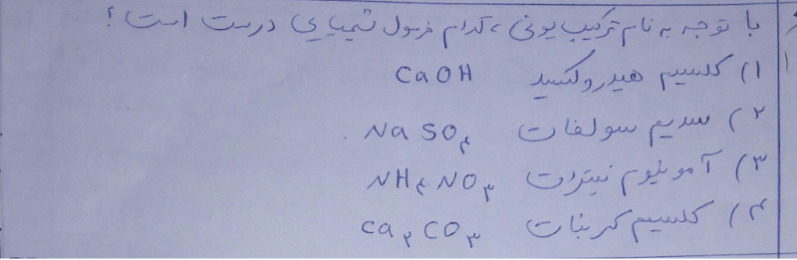 با توجه به نام ترکیب یونی، کدام فرمول شیمیایی درست است؟
۱) کلسیم هیدروکسید CaOH
۲) سدیم سولفات NaSO۴
۳) آمونیوم نیترات NH۴NO۳
۴) کلسیم کربنات Ca۲CO۳